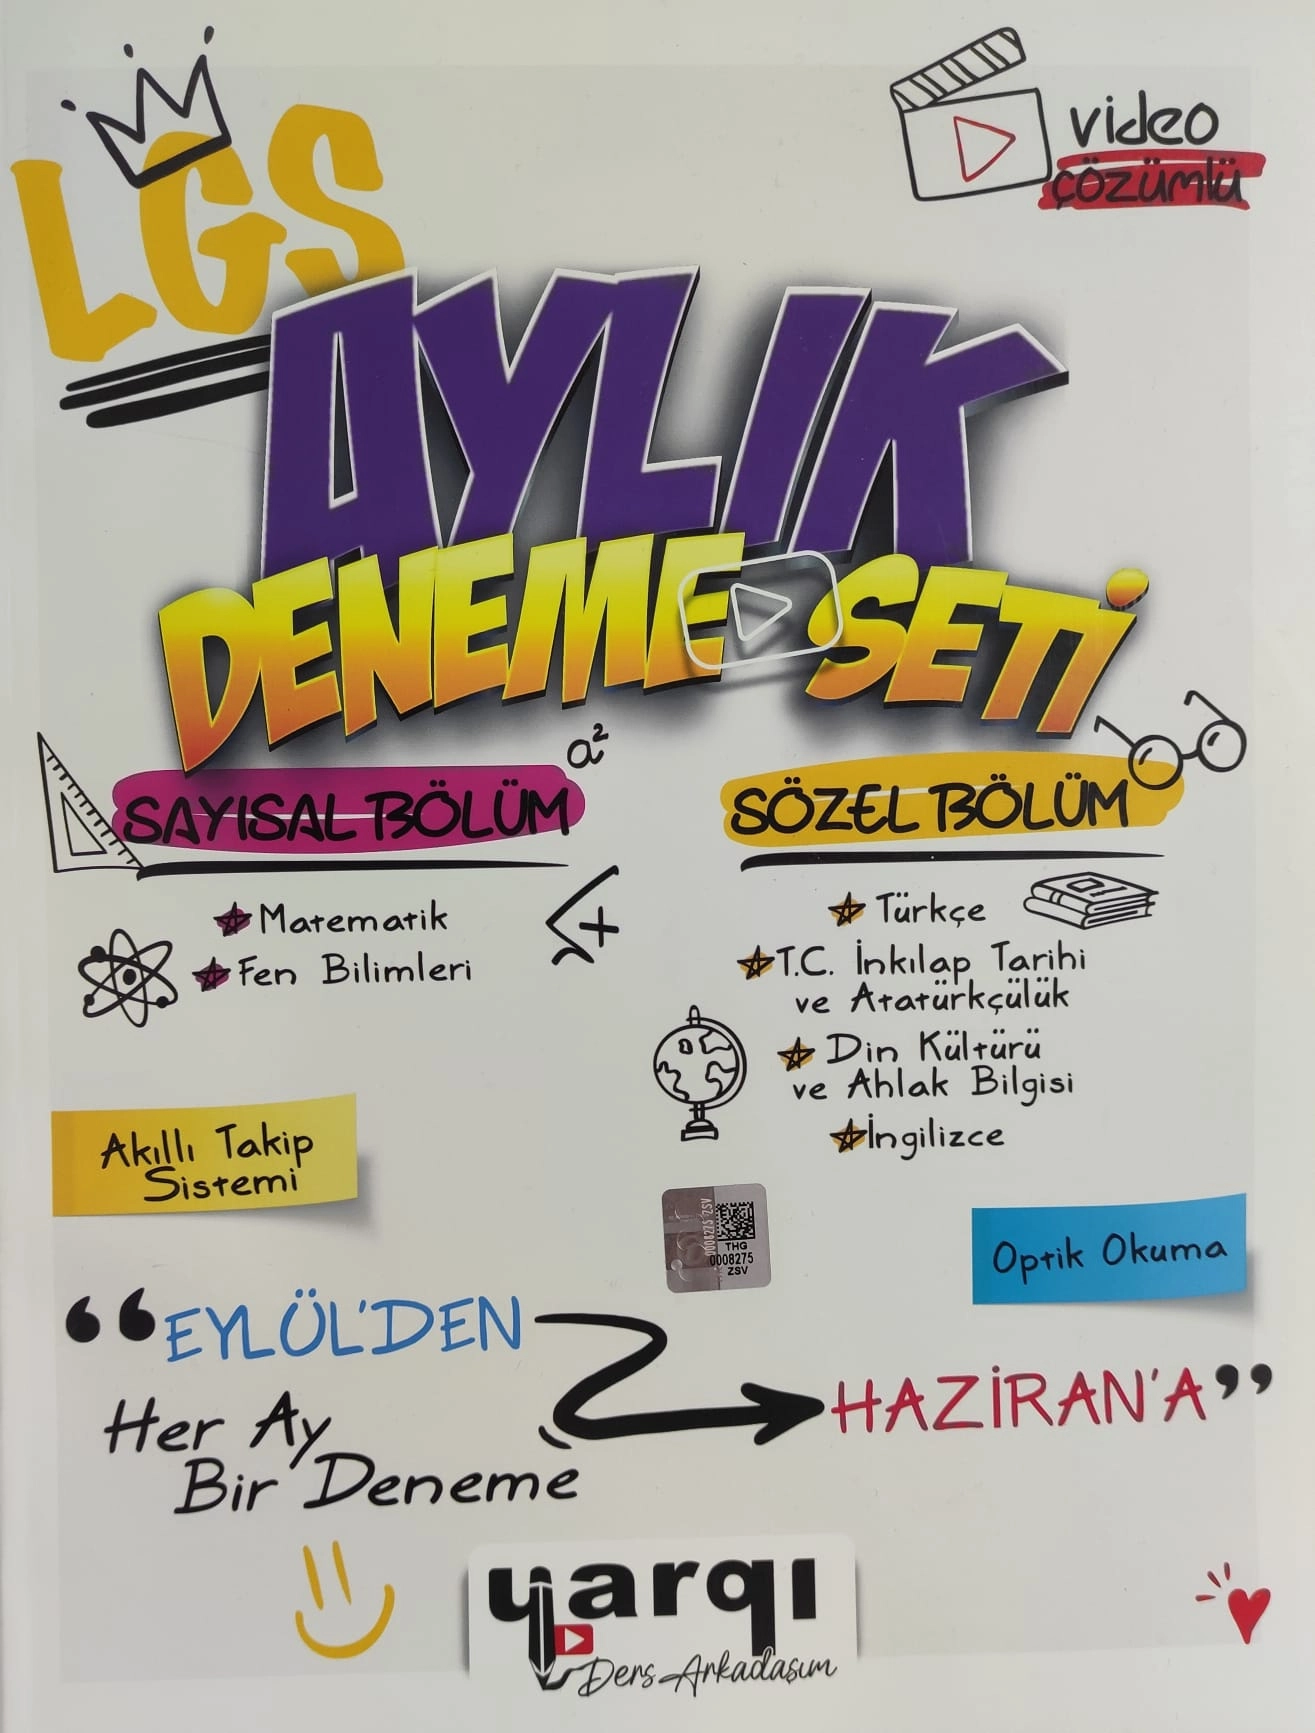 LGS
video
çözümlü
AYLIK
DENEME SETİ
a²
SAYISAL BÖLÜM
Matematik
Fen Bilimleri
SÖZEL BÖLÜM
Türkçe
T.C. İnkılap Tarihi
ve Atatürkçülük
Din Kültürü
ve Ahlak Bilgisi
İngilizce
Akıllı Takip
Sistemi
0008275 ZSV
THG
0008275
ZSV
Optik Okuma
“EYLÜL'DEN
HAZİRAN'A”
Her Ay
Bir Deneme
yarqı
Ders Arkadaşım